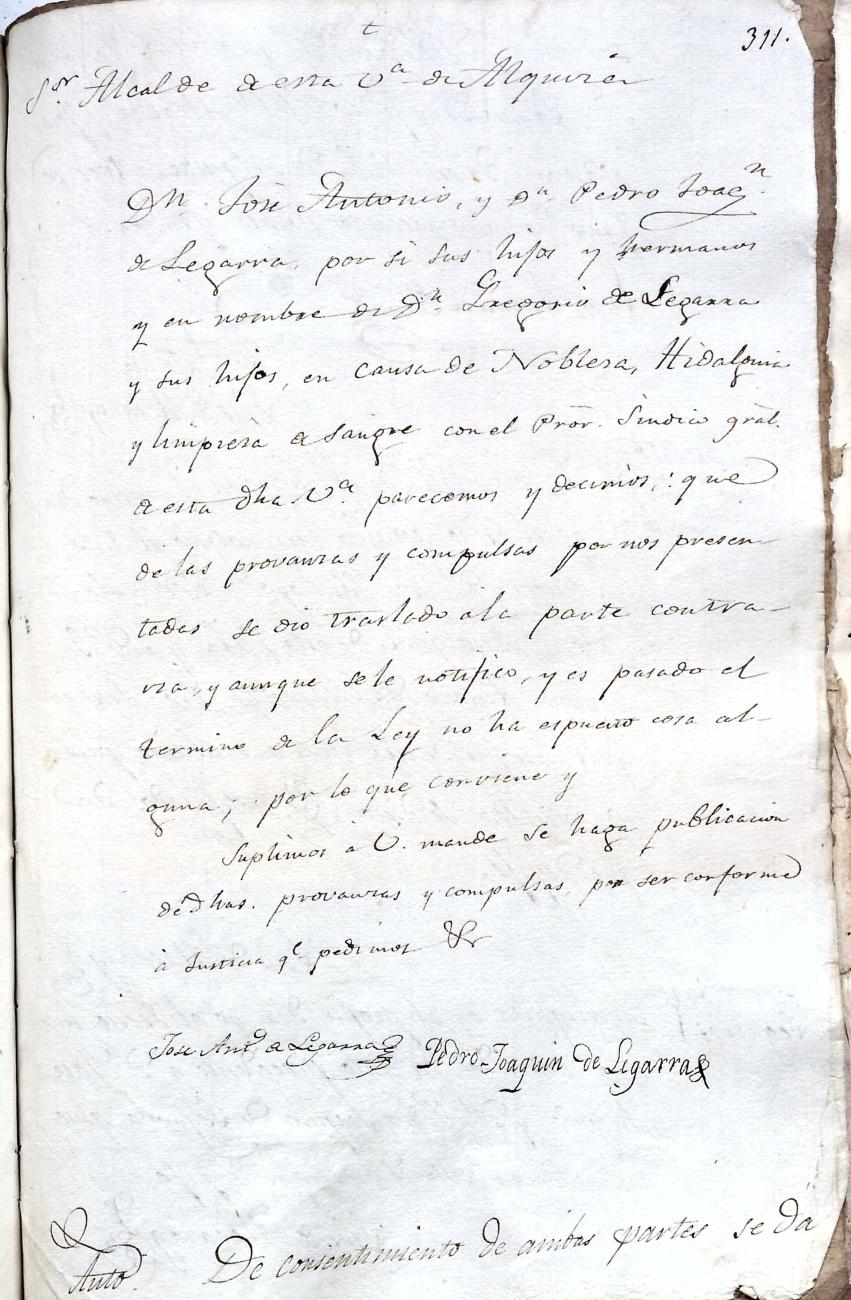 311.
t
Sor Alcalde de esta Va de Alquiza
Dn. José Antonio, y Dn. Pedro Joaqn.
de Legarra, por si sus hijos y hermanos
y en nombre de Dn. Gregorio de Legarra
y sus hijos, en causa de Nobleza, Hidalguia
y limpieza de sangre con el Pror. Sindico gral.
de esta dha Va. parecemos y decimos,: que
de las provanzas y compulsas por nos presen-
tadas se dio traslado ala parte contra-
ria, y aunque sele notifico, y es pasado el
termino de la Ley no ha espuesto cosa al-
guna; por lo que conviene y
Suplimos à V. mande se haga publicacion
de dhas. provanzas y compulsas, por ser conforme
à Justicia qe pedimos &
Jose Anto de Legarra Pedro Joaquin de Legarra
Auto. De consentimiento de ambas partes se da